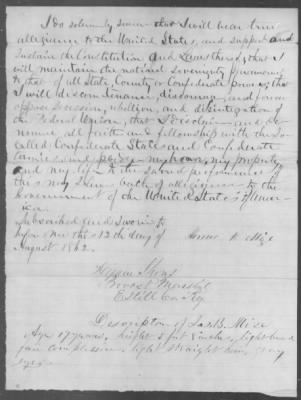 I do solemnly swear that I will bear true
allegiance to the United States, and support and
sustain the Constitution and Laws thereof; that I
will maintain the national sovereignty paramount
to that of all State, County or Confederate powers; that
I will discountenance, discourage, and forever
oppose secession, rebellion, and disintegration of
the Federal Union, that I disclaim and de-
nounce all faith and fellowship with the So-
called Confederate States and Confederate
armies and pledge my honor, my property
and my life to the sacred performance of
this my Solemn oath of allegiance to the
Government of the United States of Amer-
ica.
Subscribed and Sworn to
before me this 12th day of
August 1862.
Provost Marshal
Estill County
Description of Jas. B. Mize
Age 17 years, hight 5 feet inches, light hair
fair complexion, light straight hair, gray
eyes.